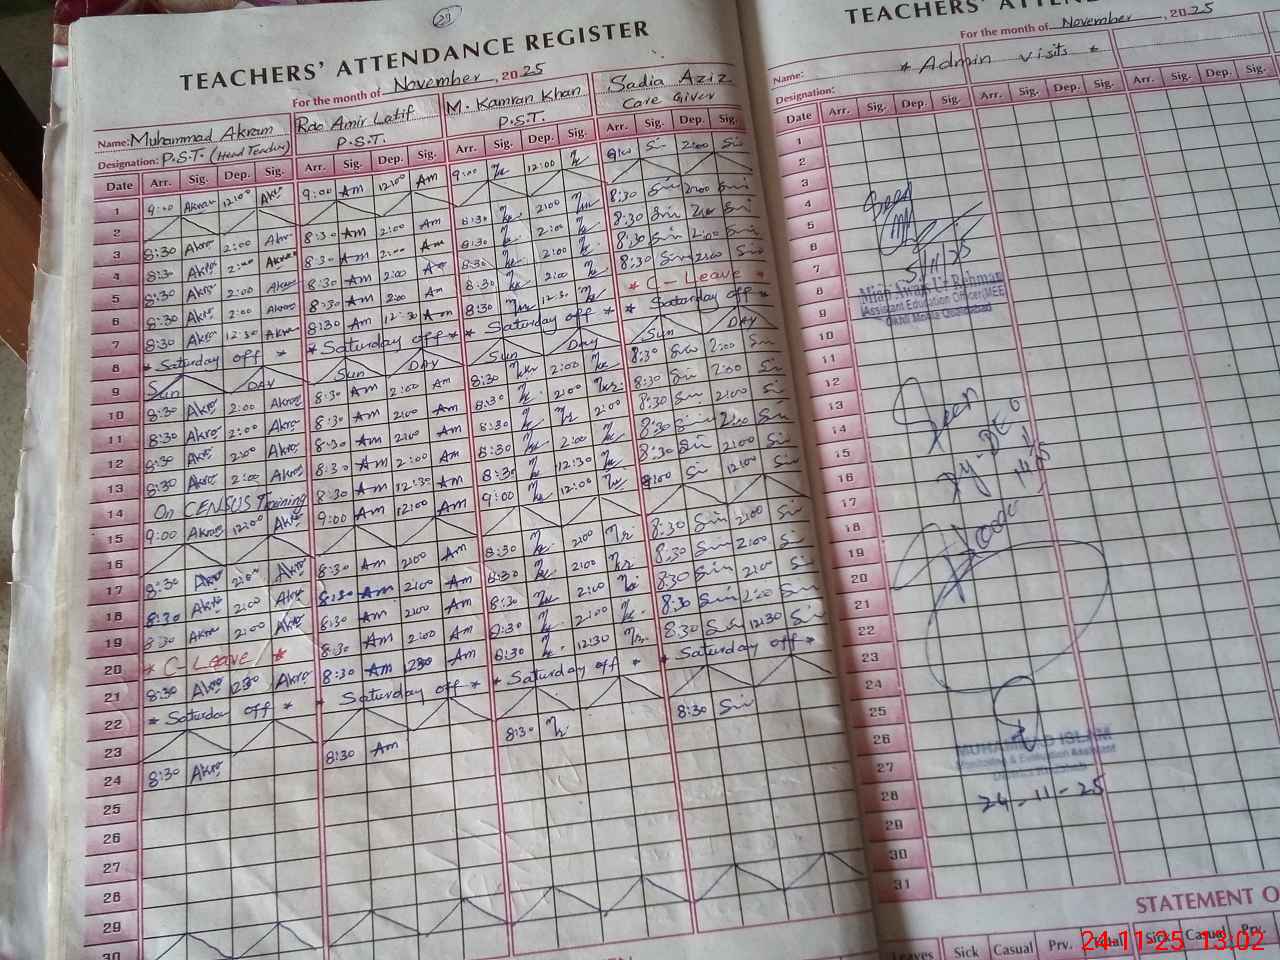 29
TEACHERS' ATTENDANCE REGISTER
For the month of November, 2025
Name: Muhammad Akram Rao Amir Latif M. Kamran Khan Sadia Aziz
Designation: P.S.T. (Head Teacher) P.S.T. P.S.T. Care Giver
Date Arr. Sig. Dep. Sig. Arr. Sig. Dep. Sig. Arr. Sig. Dep. Sig. Arr. Sig. Dep. Sig.
1 9:00 Akram 12:00 Akr 9:00 Am 12:00 Am 9:00 12:00 9:00 Sin 2:00 Sin
2
3 8:30 Akr 2:00 Akr 8:30 Am 2:00 Am 8:30 2:00 8:30 Sin 2:00 Sin
4 8:30 Akr 2:00 Akr 8:30 Am 2:00 Am 8:30 2:00 8:30 Sin 2:00 Sin
5 8:30 Akr 2:00 Akr 8:30 Am 2:00 Am 8:30 2:00 8:30 Sin 2:00 Sin
6 8:30 Akr 2:00 Akr 8:30 Am 2:00 Am 8:30 2:00 8:30 Sin 2:00 Sin
7 8:30 Akr 12:30 Akr 8:30 Am 12:30 Am 8:30 12:30 * C-Leave *
8 * Saturday off * * Saturday off * * Saturday off * * Saturday off *
9 Sun DAY Sun DAY Sun DAY Sun DAY
10 8:30 Akr 2:00 Akr 8:30 Am 2:00 Am 8:30 2:00 8:30 Sin 2:00 Sin
11 8:30 Akr 2:00 Akr 8:30 Am 2:00 Am 8:30 2:00 8:30 Sin 2:00 Sin
12 8:30 Akr 2:00 Akr 8:30 Am 2:00 Am 8:30 2:00 8:30 Sin 2:00 Sin
13 8:30 Akr 2:00 Akr 8:30 Am 2:00 Am 8:30 2:00 8:30 Sin 2:00 Sin
14 On CENSUS Training 8:30 Am 12:30 Am 8:30 12:30 8:30 Sin 2:00 Sin
15 9:00 Akr 12:00 Akr 9:00 Am 12:00 Am 9:00 12:00 9:00 Si 12:00 Sin
16
17 8:30 Akr 2:00 Akr 8:30 Am 2:00 Am 8:30 2:00 8:30 Sin 2:00 Sin
18 8:30 Akr 2:00 Akr 8:30 Am 2:00 Am 8:30 2:00 8:30 Sin 2:00 Sin
19 8:30 Akr 2:00 Akr 8:30 Am 2:00 Am 8:30 2:00 8:30 Sin 2:00 Sin
20 * C-Leave * 8:30 Am 2:00 Am 8:30 2:00 8:30 Sin 2:00 Sin
21 8:30 Akr 1230 Akr 8:30 Am 1230 Am 8:30 12:30 8:30 Sin 12:30 Sin
22 * Saturday off * * Saturday off * * Saturday off * * Saturday off *
23
24 8:30 Akr 8:30 Am 8:30 8:30 Sin
25
26
27
28
29
30
TEACHERS' ATTENDA
For the month of November, 2025
Name: * Admin visits *
Designation:
Date Arr. Sig. Dep. Sig. Arr. Sig. Dep. Sig.
1
2
3
4
5
6
7
8
9
10
11
12
13
14
15
16
17
18
19
20
21
22
23
24
25
26
27
28
29
30
31
Seen
5/11/25
Assistant Education Officer(MEE)
Seen
Dy-DEO
MUHAMMAD ISLAM
Monitoring & Evaluation Assistant
24-11-25
STATEMENT O
Leaves Sick Casual Prv. Total Sick Casual Prv.
24-11-25 13:02